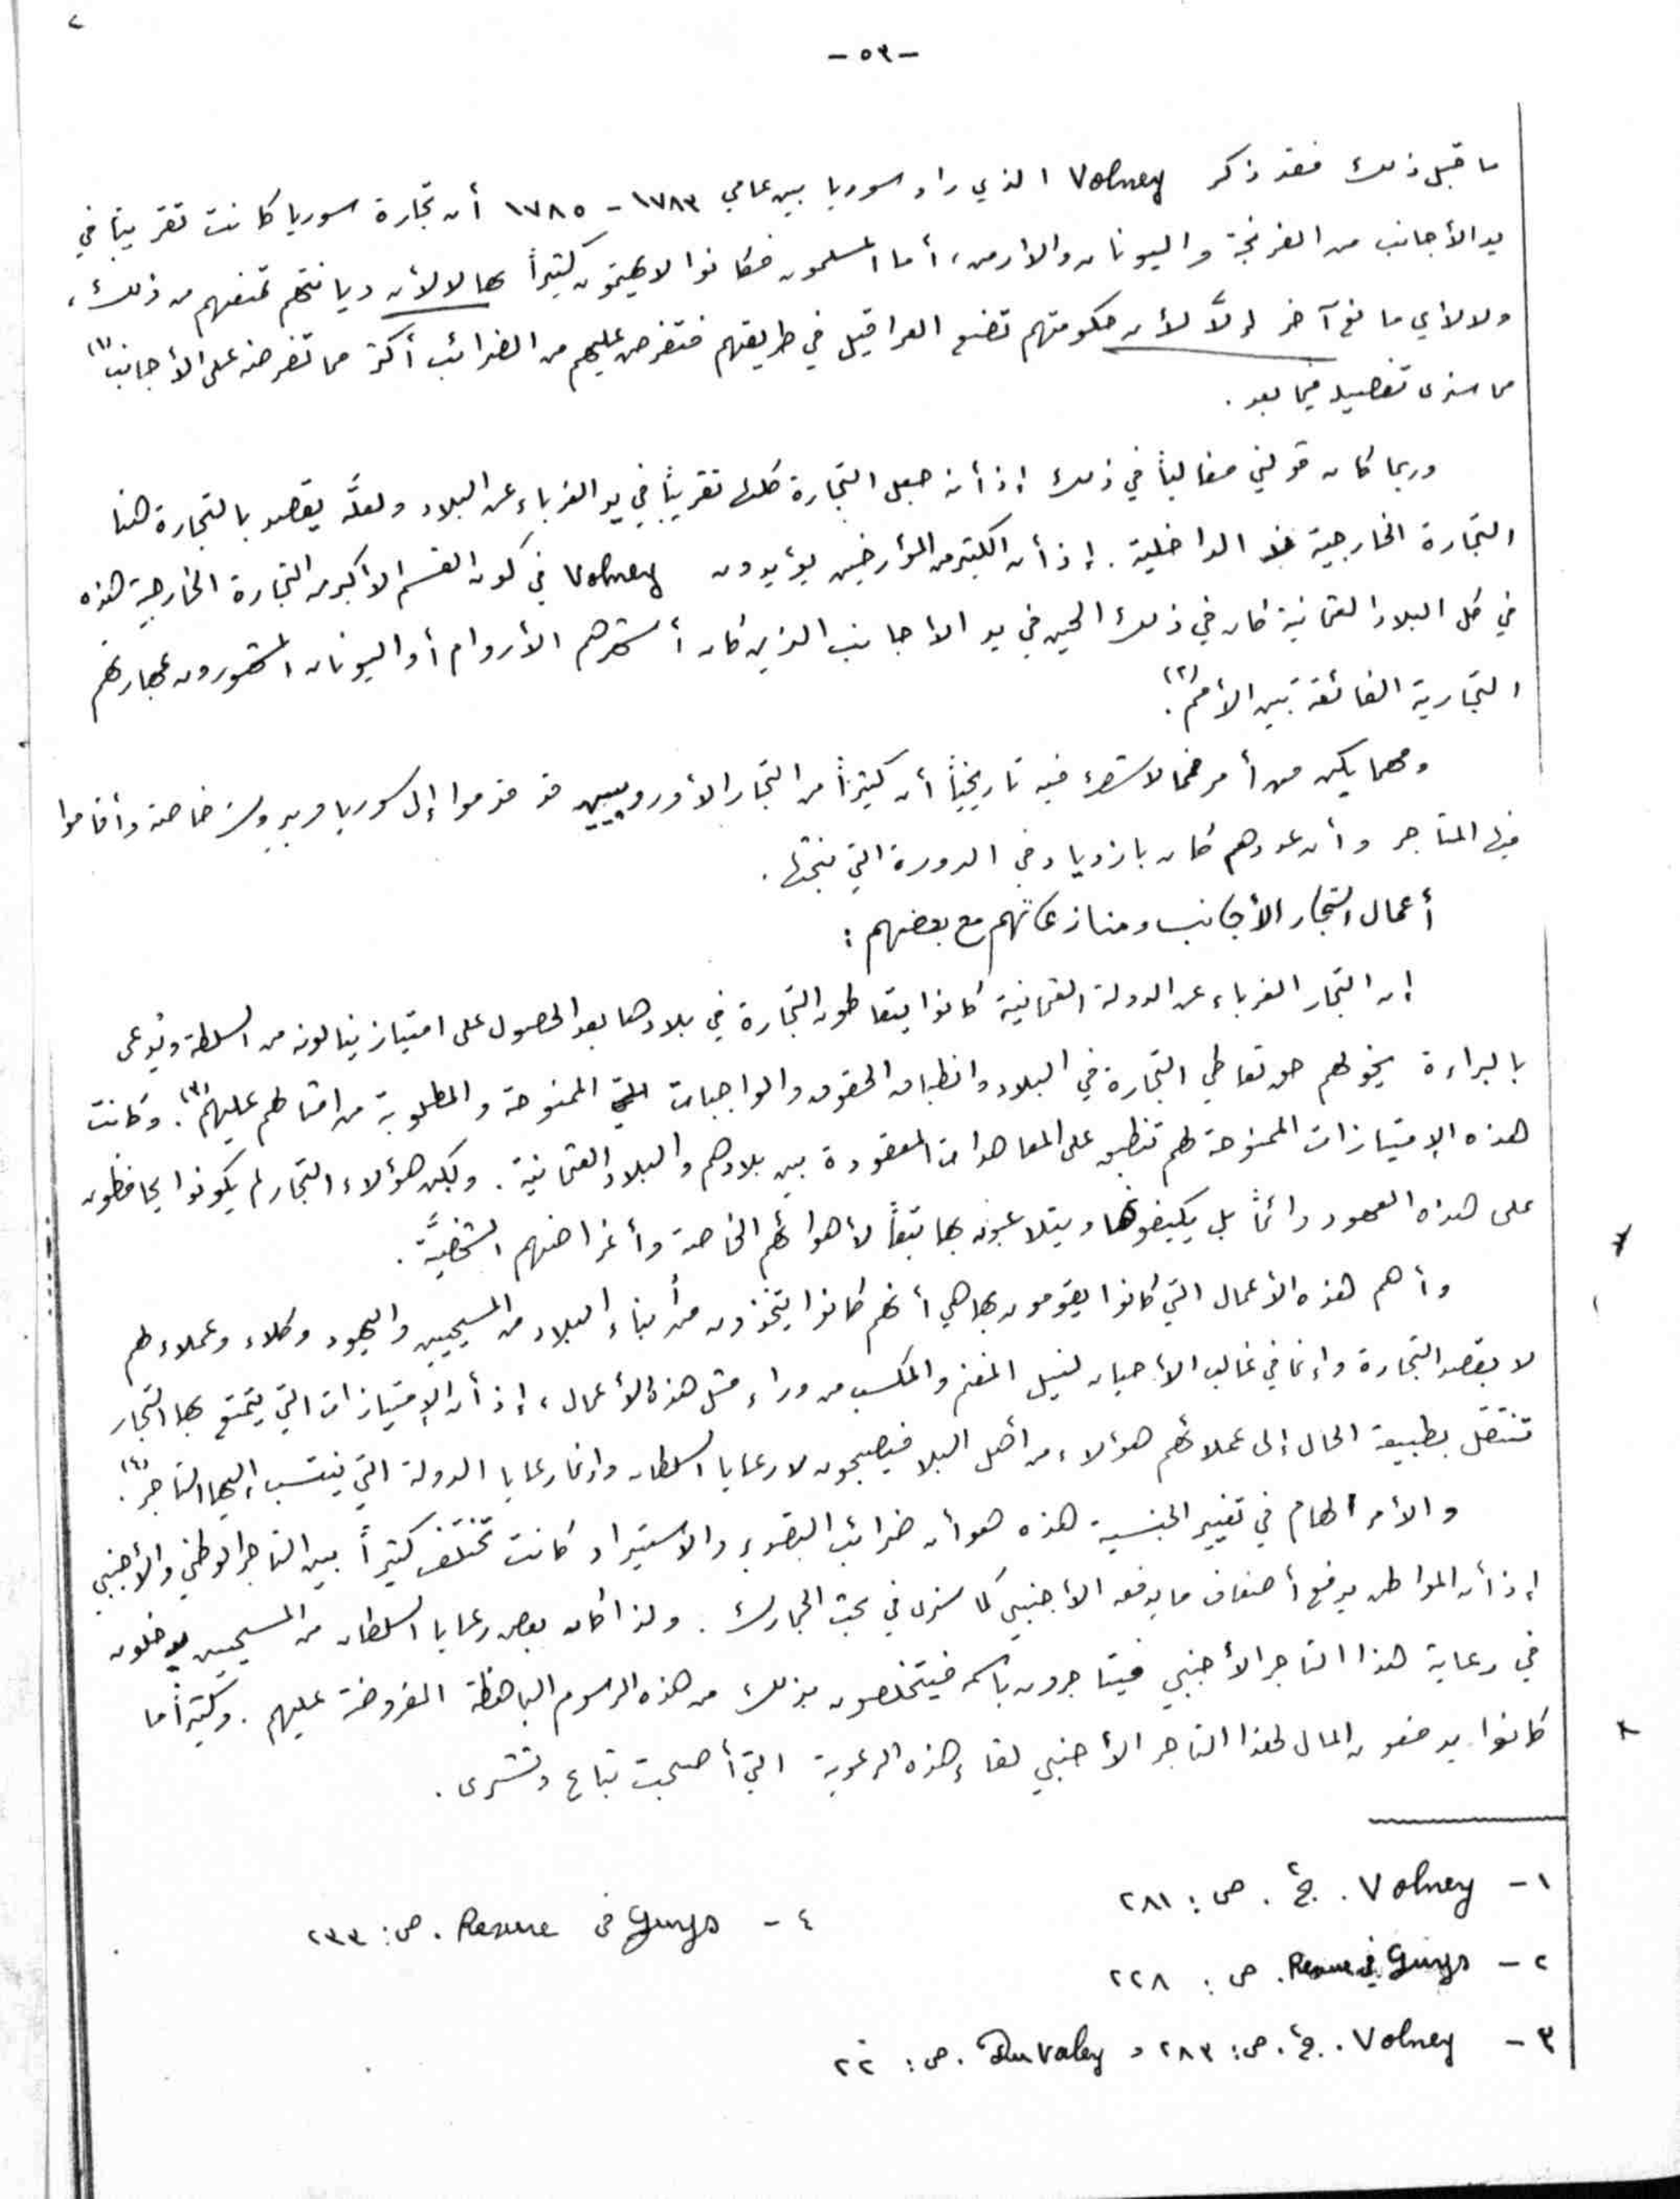 -٥٣-
ما قبل ذلك فقد ذكر Volney الذي زار سوريا بين عامي ١٧٨٣ - ١٧٨٥ أن تجارة سوريا كانت تقريبًا في
يد الأجانب من الفرنجة واليونان والأرمن، أما المسلمون فكانوا لا يهتمون كثيراً بها لا لأن ديانتهم تمنعهم من ذلك،
ولا لأي مانع آخر إلاَّ لأن حكومتهم تضع العراقيل في طريقهم فتفرض عليهم من الضرائب أكثر مما تفرضه على الأجانب (١)
مما سنرى تفصيله فيما بعد .
وربما كان ڤولني مغالياً في ذلك إذ أنه جعل التجارة كلها تقريباً في يد الغرباء عن البلاد ولعلَّه يقصد بالتجارة هنا
التجارة الخارجية لا الداخلية . إذ أن الكثير من المؤرخين يؤيدون Volney في كون القسم الأكبر من التجارة الخارجية هذه
في كل البلاد العثمانية كان في ذلك الحين في يد الأجانب الذين كان أشهرهم الأروام أو اليونان المشهورون بمهارتهم
التجارية الفائقة بين الأمم (٢).
ومهما يكن من أمر فمما لا شك فيه تاريخياً أن كثيراً من التجار الأوروبيين قد قدموا إلى سوريا وبيروت خاصة وأقاموا
فيها المتاجر وأن عددهم كان بازدياد في الدورة التي نبحثها .
أعمال التجار الأجانب ومنازعاتهم مع بعضهم :
إن التجار الغرباء عن الدولة العثمانية كانوا يتعاطون التجارة في بلادها بعد الحصول على امتياز ينالونه من السلطة ويُدعى
بالبراءة يخولهم حق تعاطي التجارة في البلاد وانطباق الحقوق والواجبات الممنوحة والمطلوبة من أمثالهم عليهم (٣). وكانت
هذه الإمتيازات الممنوحة لهم تنطبق على المعاهدات المعقودة بين بلادهم والبلاد العثمانية . ولكن هؤلاء التجار لم يكونوا يحافظون
على هذه العهود دائماً بل يكيفونها ويتلاعبون بها تبعاً لأهوائهم الخاصة وأغراضهم الشخصيَّة .
وأهم هذه الأعمال التي كانوا يقومون بها هي أنهم كانوا يتخذون من أبناء البلاد من المسيحيين واليهود وكلاء وعملاء لهم
لا بقصد التجارة وإنما في غالب الأحيان لنيل المغنم والمكسب من وراء مثل هذه الأعمال، إذ أن الإمتيازات التي يتمتع بها التجار
تنتقل بطبيعة الحال إلى عملائهم هؤلاء من أهل البلاد فيصبحون لا رعايا السلطان وإنما رعايا الدولة التي ينتسب إليها التاجر (٤).
والأمر الهام في تغيير الجنسية هذه هو أن ضرائب التصدير والاستيراد كانت تختلف كثيراً بين التاجر الوطني والأجنبي
إذ أن المواطن يدفع أضعاف ما يدفعه الأجنبي كما سنرى في بحث الجمارك . ولذا كان بعض رعايا السلطان من المسيحيين يدخلون
في رعاية هذا التاجر الأجنبي فيتاجرون باسمه فيتخلصون بذلك من هذه الرسوم الباهظة المفروضة عليهم . وكثيراً ما
كانوا يدفعون المال لهذا التاجر الأجنبي لقاء هذه الرعوية التي أصبحت تباع وتشرى .
١ - Volney . ج٢ . ص : ٢٨١
٢ - Guys في Revue . ص : ٢٢٨
٣ - Volney . ج٢ . ص : ٢٨٣ و . ص :
٤ - Guys في Revue . ص : ٢٣٣